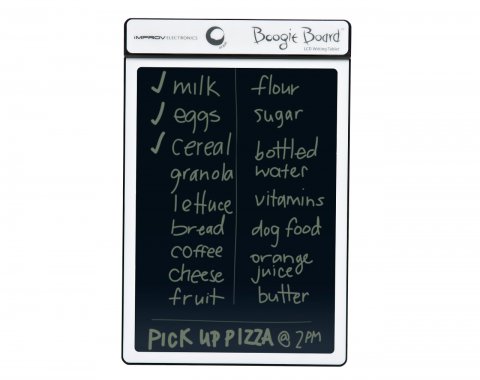 iMPROV ELECTRONICS
Boogie Board
LCD Writing Tablet
✓ milk
✓ eggs
✓ cereal
granola
lettuce
bread
coffee
cheese
fruit
flour
sugar
bottled
water
vitamins
dog food
orange
juice
butter
PICK UP PIZZA @ 2PM